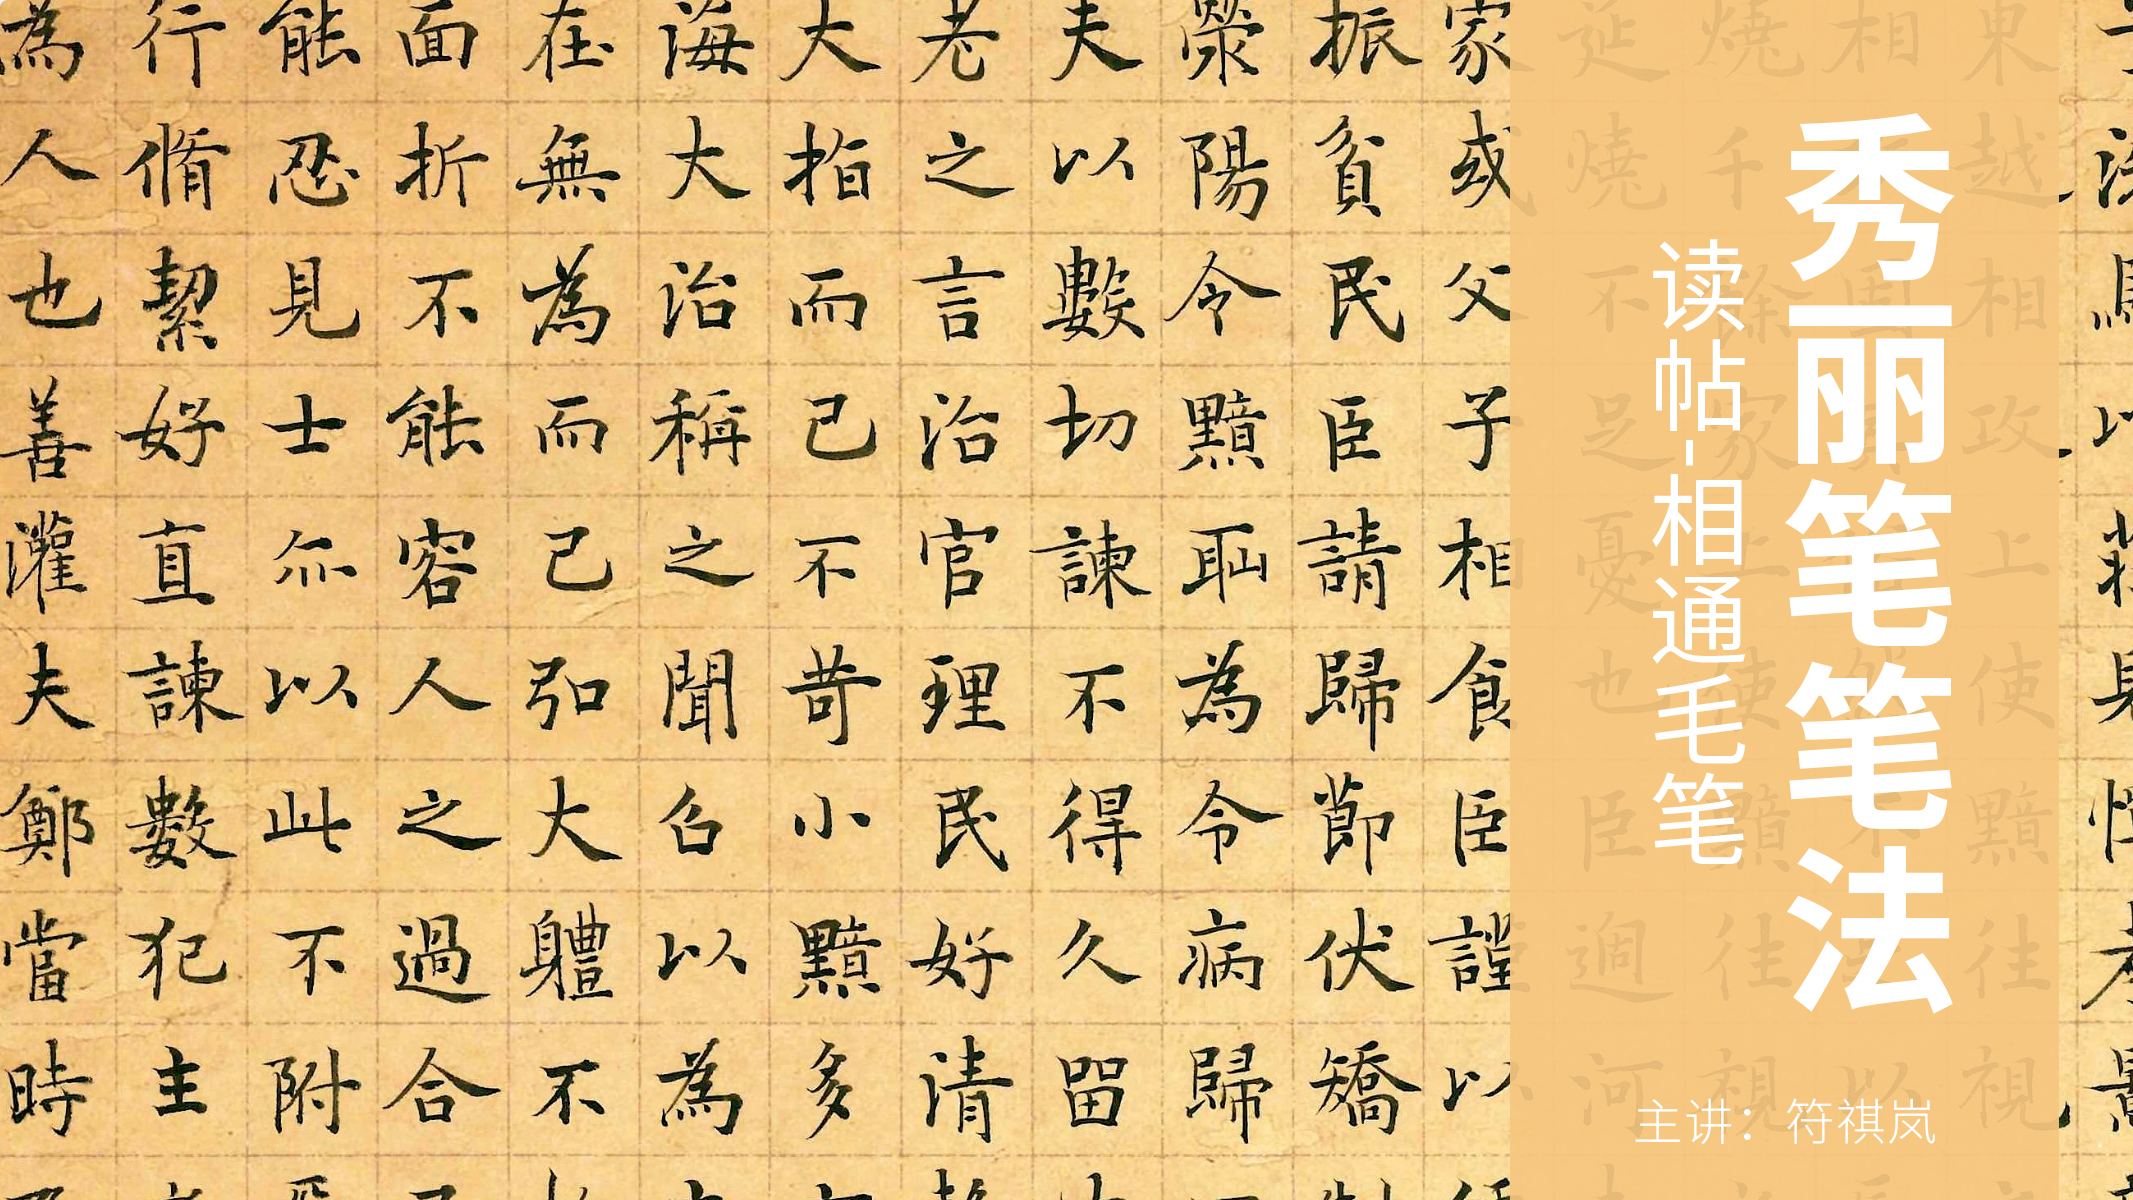 秀丽笔笔法
读帖-相通毛笔
主讲：符祺岚
東越相攻上使黯往視
延燒不足憂也臣過河
家或父子相食臣謹以
振貧民臣請歸節伏矯
滎陽令黯耻為令病歸
夫以數切諫不得久留
老之言治官理民好清
大指而已不苛小黯多
海大治稱之聞召以為
在無為而已弘大軆不
面折不能容人之過合
能忍見士亦以此不附
行脩絜好直諫數犯主
為人也善灌夫鄭當時